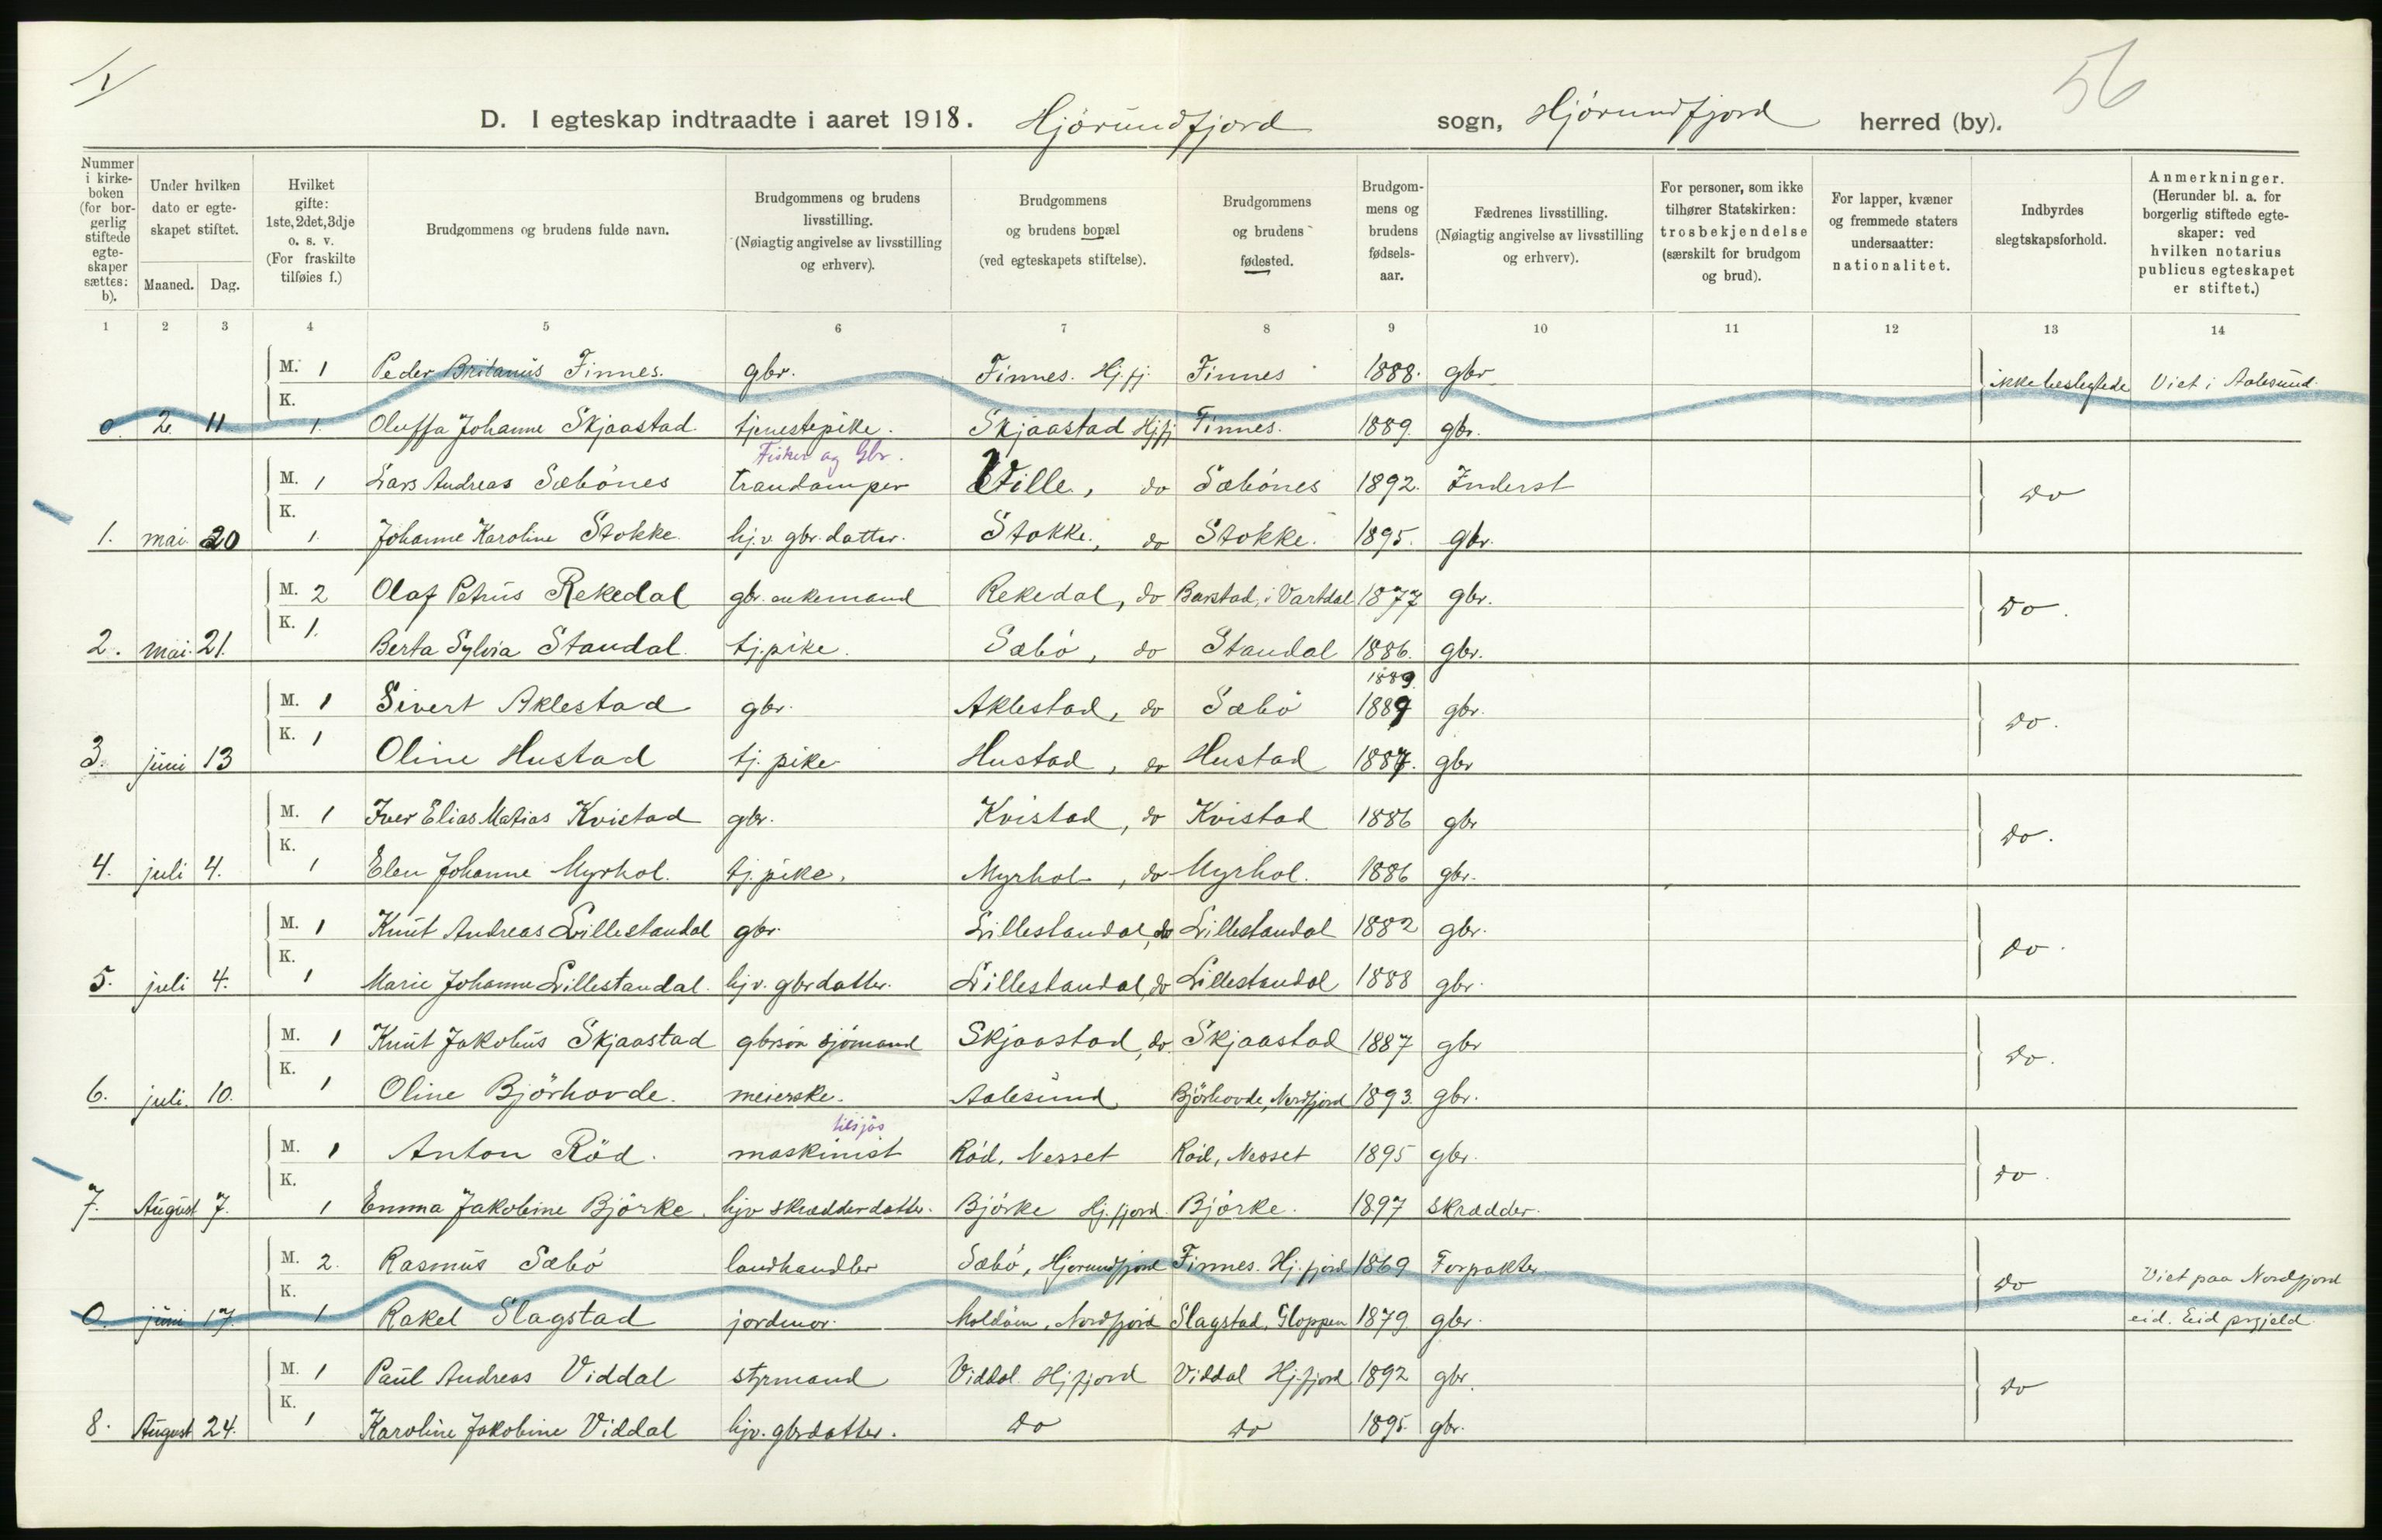 1/
56
D. I egteskap indtraadte i aaret 1918. Hjörundfjord sogn, Hjörundfjord herred (by).
Nummer i kirkeboken (for borgerlig stiftede egteskaper sættes: b).
Under hvilken dato er egteskapet stiftet.
Maaned. Dag.
Hvilket gifte: 1ste, 2det, 3dje o. s. v. (For fraskilte tilføies f.)
Brudgommens og brudens fulde navn.
Brudgommens og brudens livsstilling. (Nøiagtig angivelse av livsstilling og erhverv).
Brudgommens og brudens bopæl (ved egteskapets stiftelse).
Brudgommens og brudens fødested.
Brudgommens og brudens fødselsaar.
Fædrenes livsstilling. (Nøiagtig angivelse av livsstilling og erhverv).
For personer, som ikke tilhører Statskirken: trosbekjendelse (særskilt for brudgom og brud).
For lapper, kvæner og fremmede staters undersaatter: nationalitet.
Indbyrdes slegtskapsforhold.
Anmerkninger. (Herunder bl. a. for borgerlig stiftede egteskaper: ved hvilken notarius publicus egteskapet er stiftet.)
1 2 3 4 5 6 7 8 9 10 11 12 13 14
M. 1 Peder Britanius Finnes. gbr. Finnes. Hj.fj. Finnes 1888. gbr. ikke beslegtede Viet i Aalesund.
K.
0. 2. 11 1. Oluffa Johanne Skjaastad. tjenestepike. Skjaastad Hj.fj Finnes. 1889. gbr.
Fisker og Gbr.
M. 1 Lars Andreas Sæbönes trandamper Ville, do Sæbönes 1892. Inderst do
K.
1. mai. 20 1. Johanne Karoline Stokke. hj.v. gbr.datter. Stokke, do Stokke. 1895. gbr.
M. 2 Olaf Petrus Rekedal gbr. enkemand Rekedal, do Barstad, i Vartdal 1877 gbr. do.
K. 1.
2. mai. 21. Berta Sylvia Standal. tj.pike. Sæbö, do Standal 1886. gbr.
1889.
M. 1 Sivert Aklestad gbr. Aklestad, do Sæbö 1889 gbr. do.
K. 1
3. juni 13 Oline Hustad tj. pike Hustad, do Hustad 1887. gbr
M. 1 Iver Elias Matias Kvistad gbr. Kvistad, do Kvistad 1886 gbr do.
K.
4. juli 4. 1 Elen Johanne Myrhol. tj. pike. Myrhol, do Myrhol. 1886 gbr.
M. 1 Knut Andreas Lillestandal gbr. Lillestandal, do Lillestandal 1882 gbr. do.
K.
5. juli 4. 1 Marie Johanne Lillestandal. hjv. gbrdatter. Lillestandal, do Lillestandal 1888 gbr.
M. 1 Knut Jakobus Skjaastad gbrsön sjömand Skjaastad, do. Skjaastad 1887 gbr do.
K.
6. juli. 10. 1 Oline Björhovde. meierske. Aalesund Björhovde, Nordfjord 1893. gbr.
tilsjös
M. 1 Anton Röd. maskinist Röd, Nesset Röd, Nesset 1895 gbr. do.
K.
7. August 7. 1 Emma Jakobine Björke. hjv skrædderdatter. Björke Hj.fjord. Björke. 1897 skrædder.
M. 2. Rasmus Sæbö landhandler Sæbö, Hjörundfjord Finnes. Hj.fjord 1869 Forpakter do Viet paa Nordfjord
K.
0. juni 17. 1 Rakel Slagstad jordmor. Moldöin, Nordfjord Slagstad, Gloppen 1879 gbr. eid. Eid prgjeld.
M. 1 Paul Andreas Viddal styrmand Viddal Hj.fjord Viddal Hj.fjord 1892 gbr. do
K.
8. August 24. 1 Karoline Jakobine Viddal hjv. gbrdatter. do do 1895. gbr.